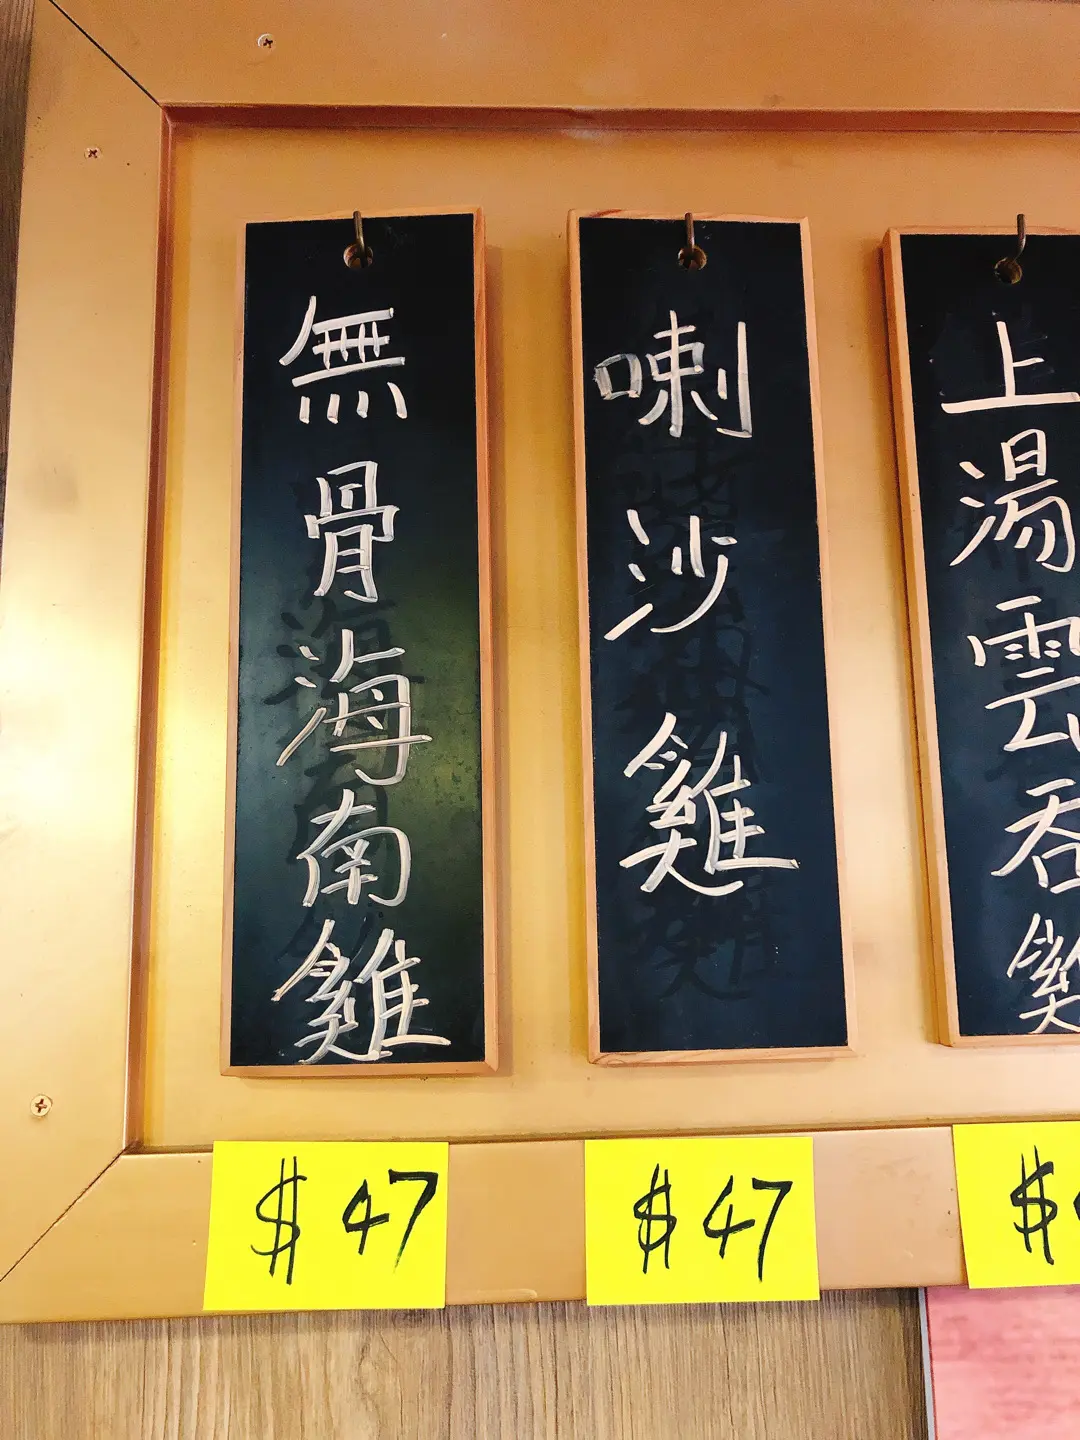 無骨海南雞
喇沙雞
上湯雲吞雞
$47
$47
$